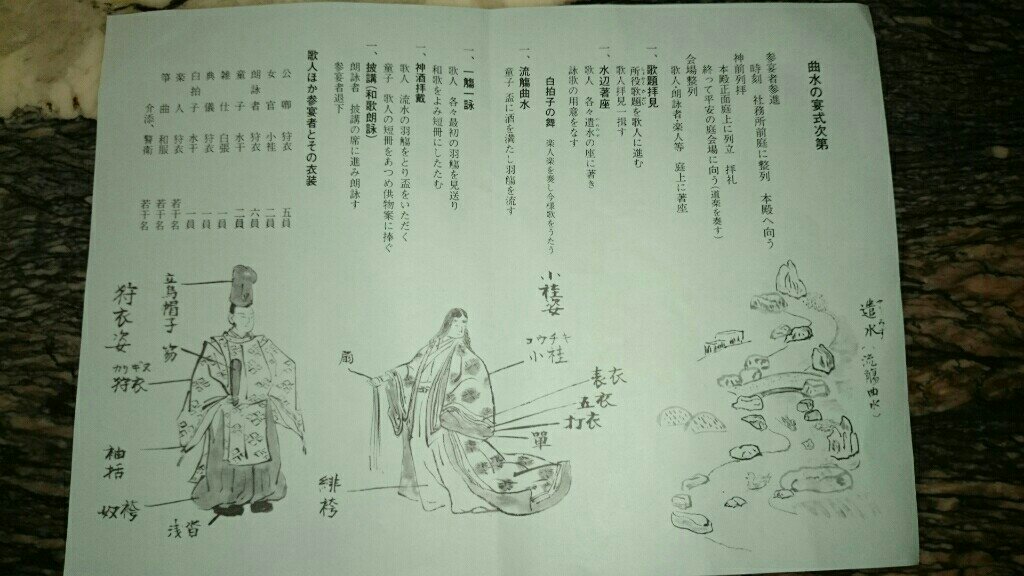 曲水の宴式次第
参宴者参進
時刻 社務所前庭に整列 本殿へ向う
神前列拝
本殿正面庭上に列立 拝礼
終って平安の庭会場に向う(道楽を奏す)
会場整列
歌人・朗詠者・楽人等 庭上に著座
一、歌題拝見
所役歌題を歌人に進む
歌人拝見一揖す
一、水辺著座
歌人 各々遣水の座に著き
詠歌の用意をなす
白拍子の舞 楽人楽を奏し今様歌をうたう
一、流觴曲水
童子 盃に酒を満たし羽觴を流す
一、一觴一詠
歌人 各々最初の羽觴を見送り
和歌をよみ短冊にしたたむ
一、神酒拝戴
歌人 流水の羽觴をとり盃をいただく
童子 歌人の短冊をあつめ供物案に捧ぐ
一、披講(和歌朗詠)
朗詠者 披講の席に進み朗詠す
参宴者退下
歌人ほか参宴者とその衣装
公卿 狩衣 五員
女官 小袿 二員
朗詠者 狩衣 六員
童子 水干 二員
雑仕 白張 一員
典儀 狩衣 一員
白拍子 水干 一員
楽人 狩衣 若干名
箏曲 和服 若干名
介添、警衛 若干名
遣水(流觴曲水)
小袿姿
コウチキ
小袿
表衣
五衣
打衣
單
扇
緋袴
狩衣姿
立烏帽子
笏
カリギヌ
狩衣
袖括
奴袴
浅沓